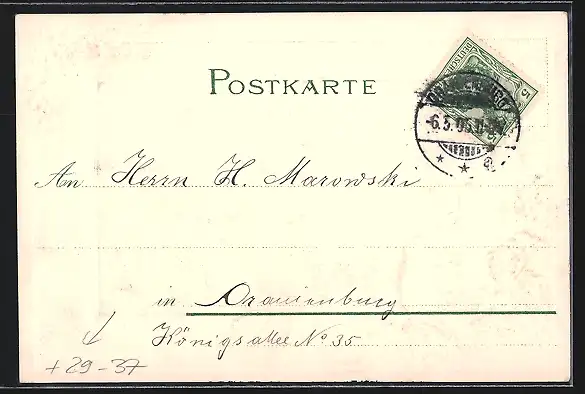 POSTKARTE
5
-6.5.05.
An Herrn H. Marowski
in Oranienburg
Königsallee No 35
+ 29-37